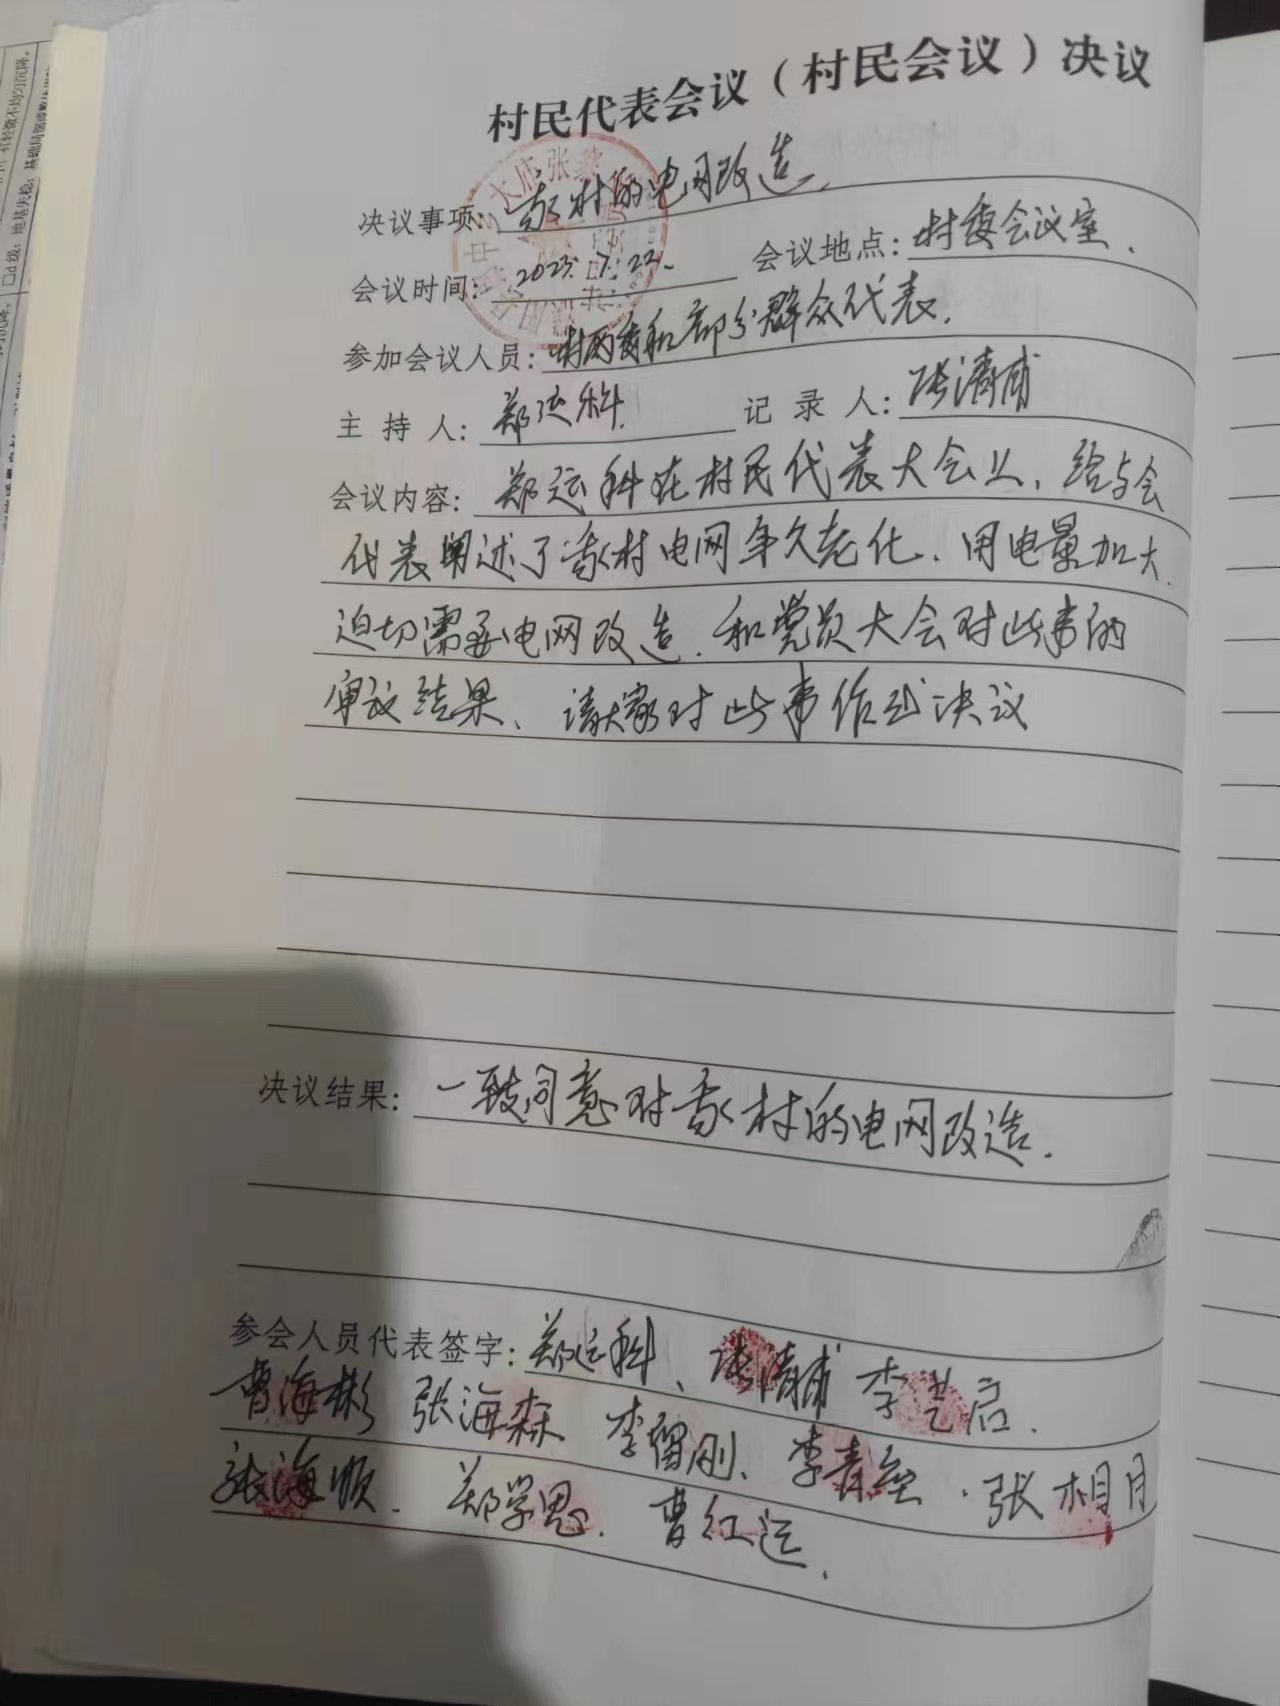 村民代表会议（村民会议）决议
决议事项：蔡村的电网改造
会议时间：2023.7.22. 会议地点：村委会议室.
参加会议人员：村两委和部分群众代表.
主持人：郑运科 记录人：张清甫
会议内容：郑运科在村民代表大会上、给与会
代表阐述了蔡村电网年久老化、用电量加大.
迫切需要电网改造.和党员大会对此事的
审议结果、请大家对此事作出决议
决议结果：一致同意对蔡村的电网改造.
参会人员代表签字：郑运科、张清甫 李 启.
曹海彬 张海森 李留刚、李青 . 张相月
张海顺. 郑学思. 曹红运.